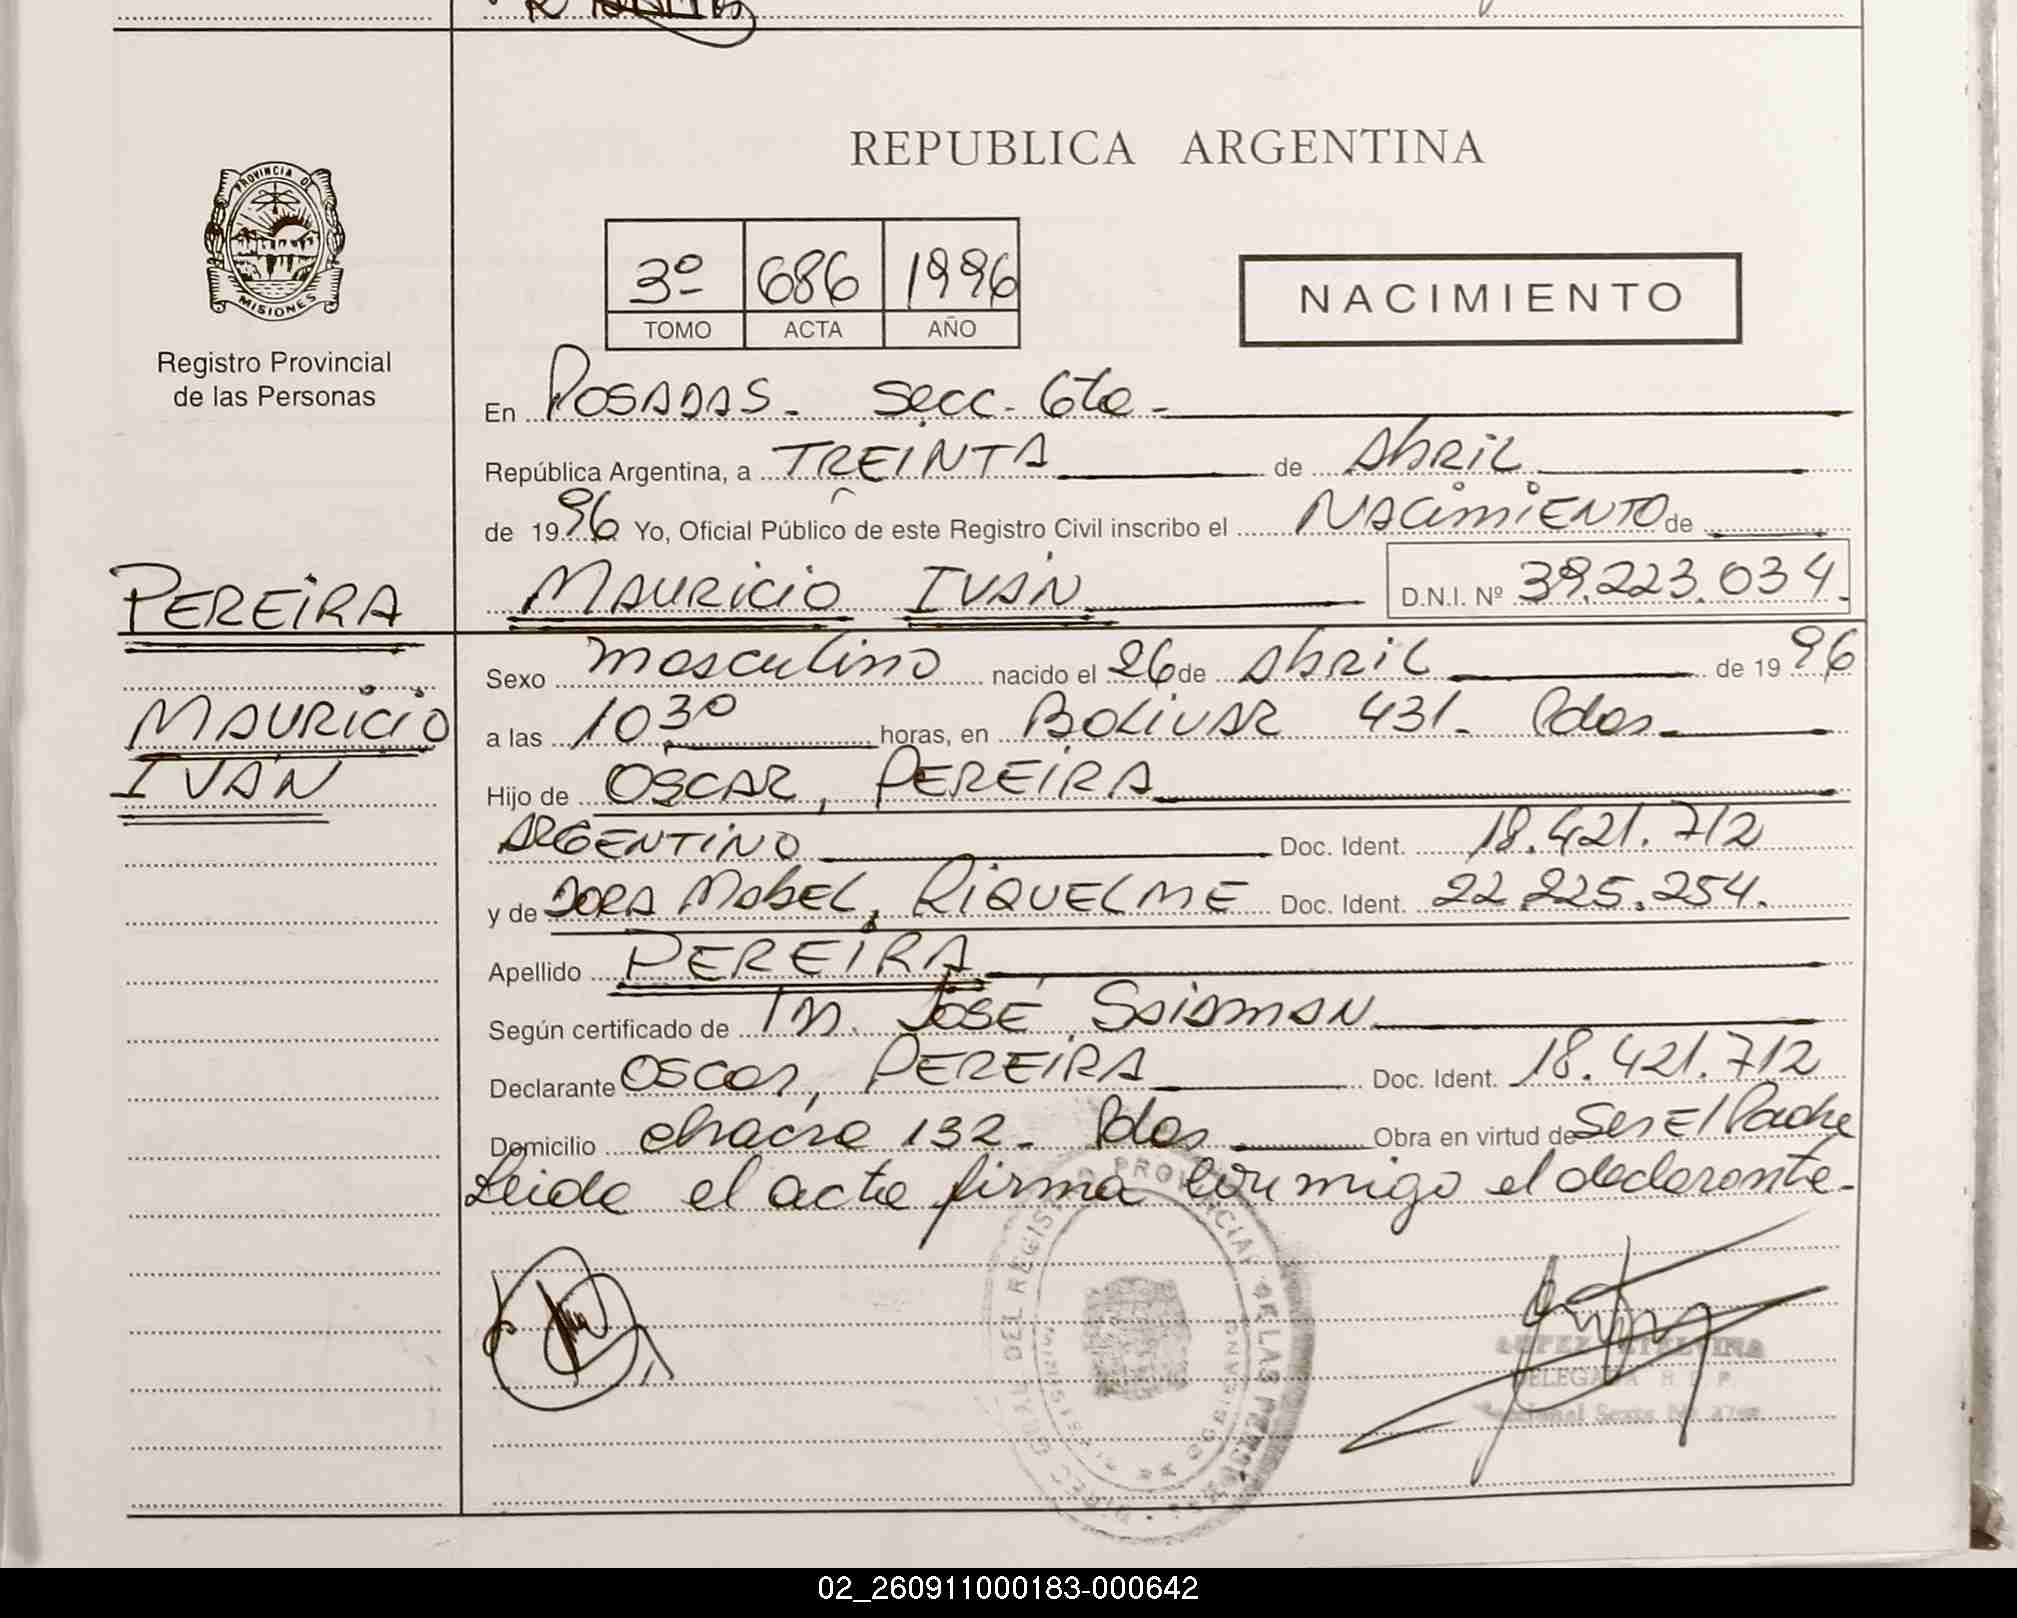 REPUBLICA ARGENTINA
PROVINCIA DE
MISIONES
Registro Provincial
de las Personas
3º 686 1996
TOMO ACTA AÑO
NACIMIENTO
En POSADAS. Secc. 6ta.
República Argentina, a TREINTA de Abril
de 1996 Yo, Oficial Público de este Registro Civil inscribo el NACimiENTO de
MAURiCiO IVÁN D.N.I. Nº 39.223.034.
PEREiRA
MAURiCiO
IVÁN
Sexo masculino nacido el 26 de Abril de 1996
a las 10³⁰ horas, en BOLÍVAR 431. Pdas
Hijo de OSCAR, PEREiRA
ARGENTiNO Doc. Ident. 18.421.712
y de DORA MABEL, RiQUELME Doc. Ident. 22.225.254.
Apellido PEREiRA
Según certificado de JOSÉ
Declarante OSCAR, PEREiRA Doc. Ident. 18.421.712
Domicilio chacra 132. Pdas Obra en virtud de Ser El Padre
Leida el acta firma conmigo el declarante.
PROVINCIAL DE LAS PERSONAS
DELEGADA R. P.
02_260911000183-000642